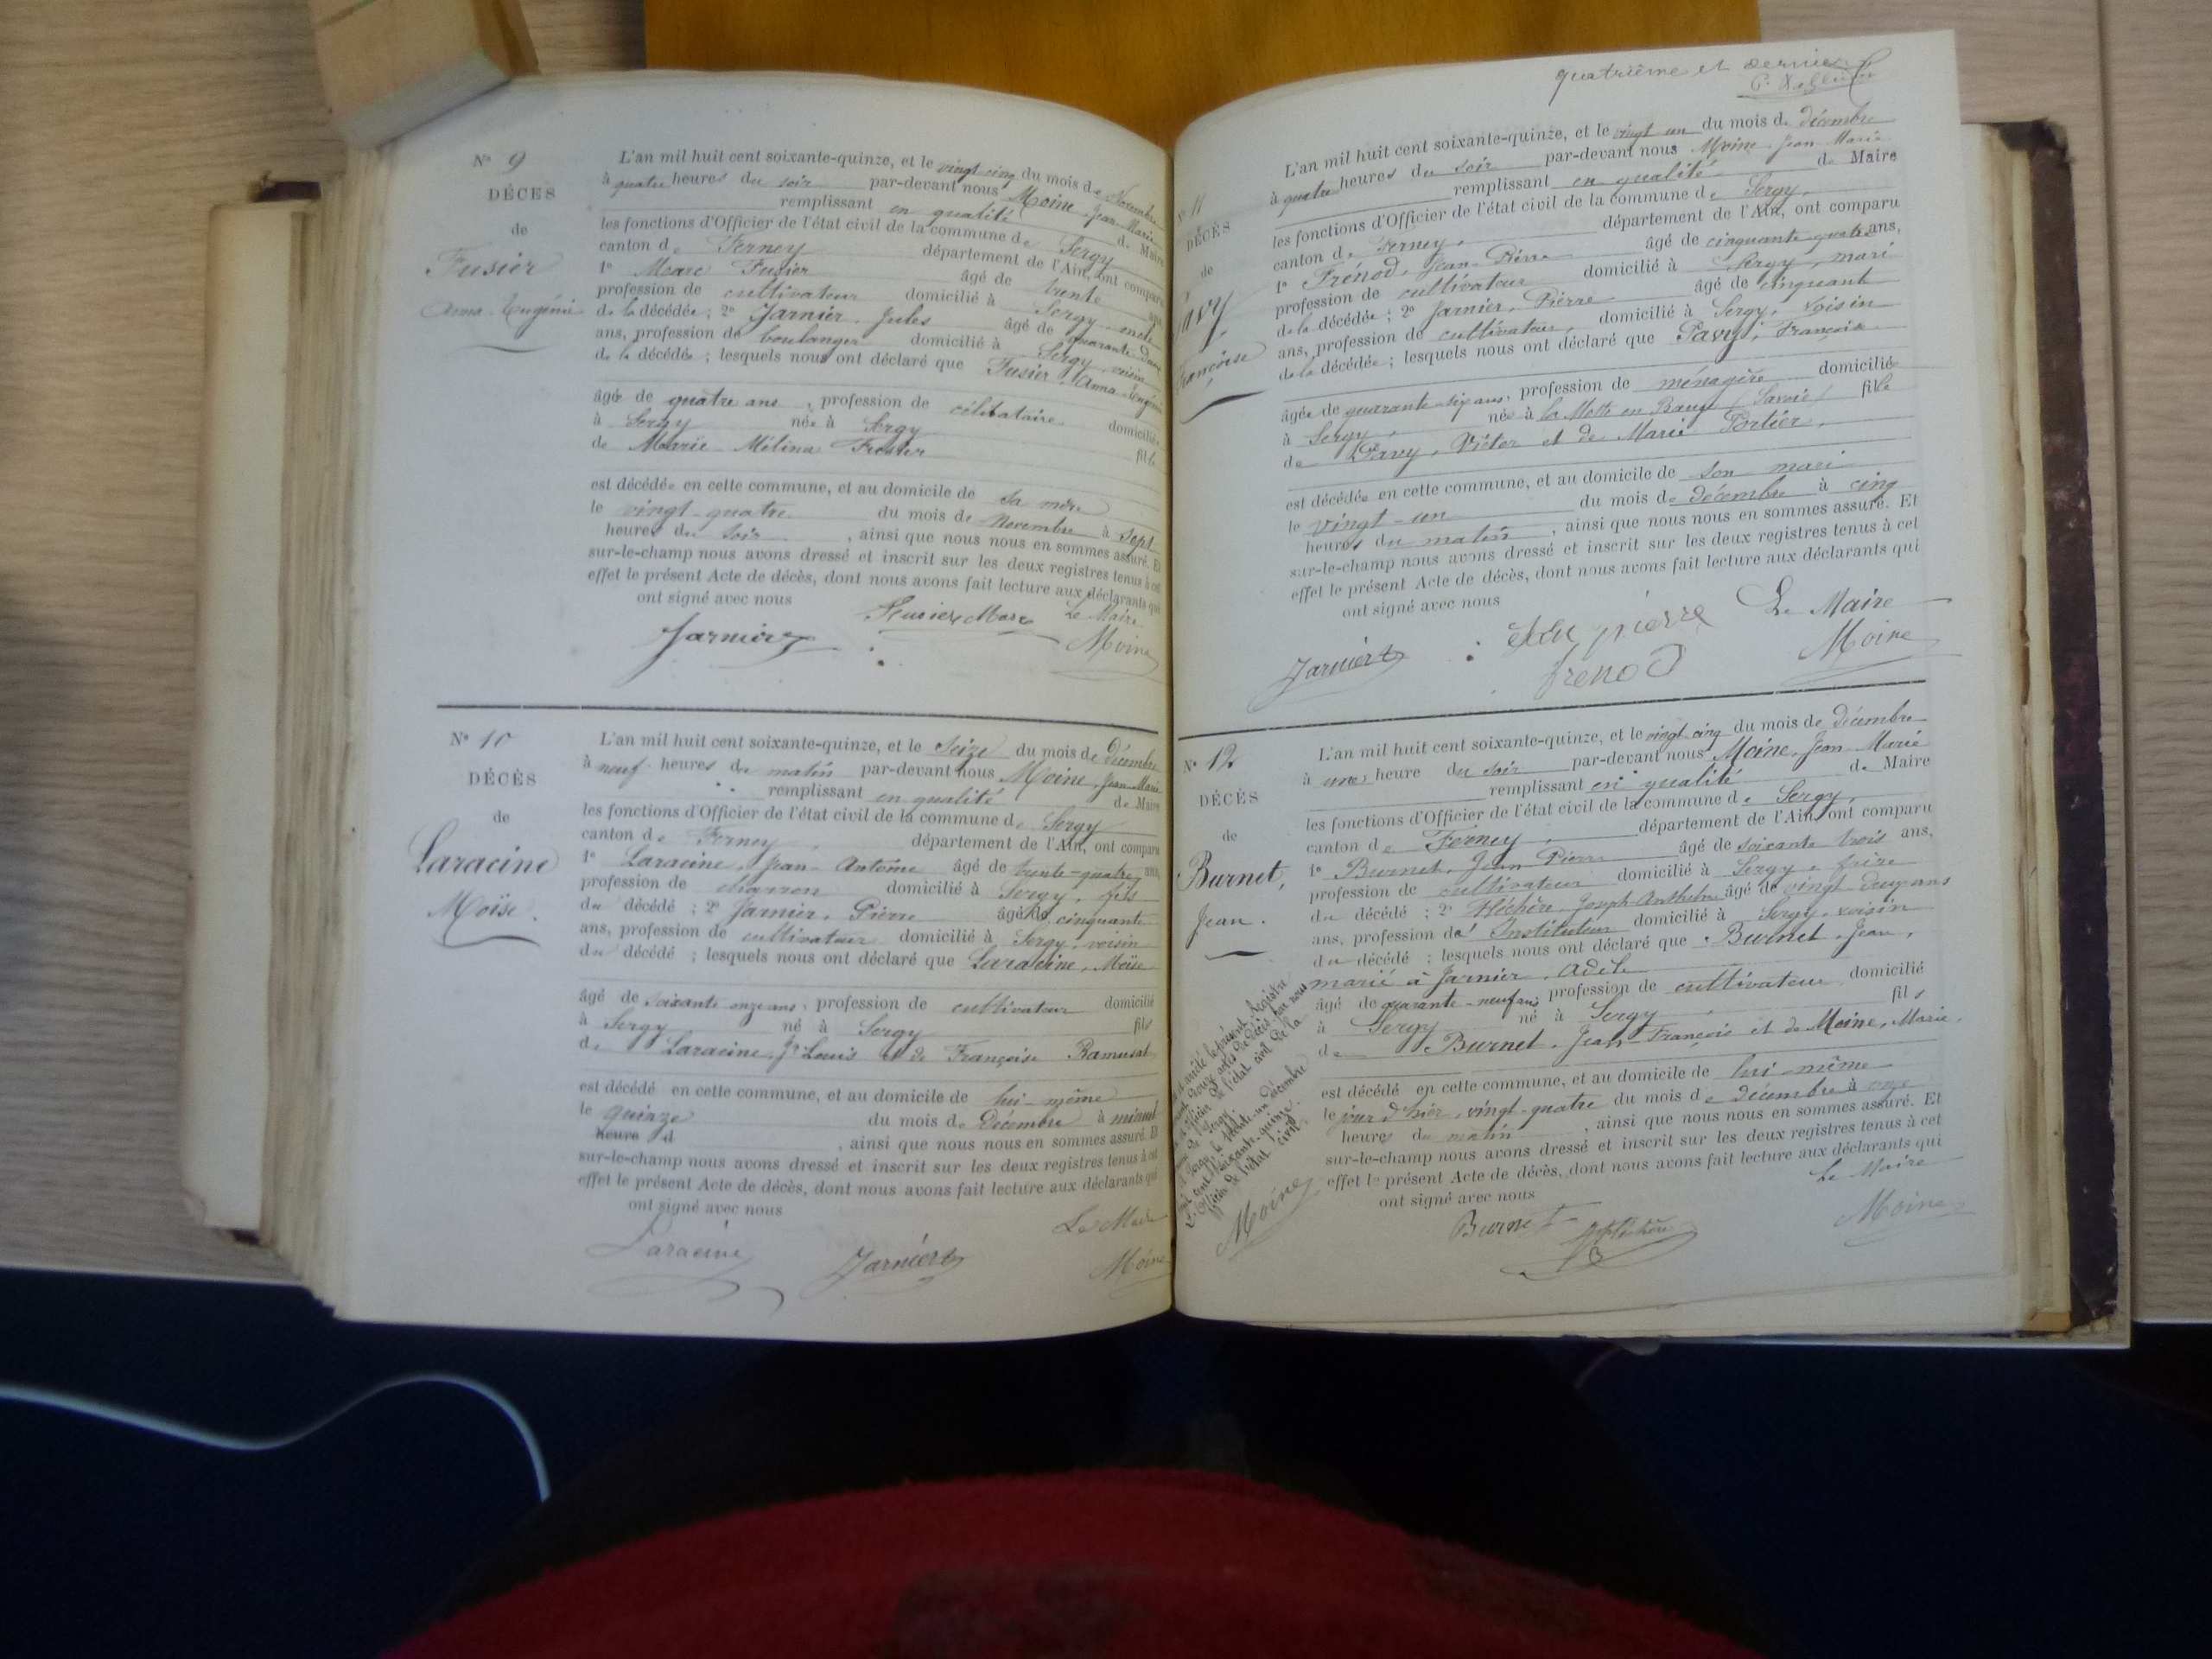 N° 9
DÉCÈS
de
Fusier
Anna Eugénie
L'an mil huit cent soixante-quinze, et le vingt cinq du mois de Novembre
à quatre heures du soir par-devant nous Moine Jean-Marie
remplissant en qualité de Maire
les fonctions d'Officier de l'état civil de la commune de Sergy
canton de Ferney département de l'Ain, ont comparu
1° Marc Fusier âgé de trente ans
profession de cultivateur domicilié à Sergy, oncle
de la décédée ; 2° Jarnier, Jules âgé de quarante deux
ans, profession de boulanger domicilié à Sergy, voisin
de la décédée ; lesquels nous ont déclaré que Fusier, Anna-Eugénie
âgée de quatre ans, profession de célibataire domiciliée
à Sergy née à Sergy
de Marie Mélina Fusier fille
est décédée en cette commune, et au domicile de sa mère
le vingt-quatre du mois de Novembre à sept
heures du soir, ainsi que nous nous en sommes assuré. Et
sur-le-champ nous avons dressé et inscrit sur les deux registres tenus à cet
effet le présent Acte de décès, dont nous avons fait lecture aux déclarants qui
ont signé avec nous
Fusier Marc Le Maire
Jarnier Moine
N° 10
DÉCÈS
de
Laracine
Moïse.
L'an mil huit cent soixante-quinze, et le Seize du mois de Décembre
à neuf heures du matin par-devant nous Moine, Jean-Marie
remplissant en qualité de Maire
les fonctions d'Officier de l'état civil de la commune de Sergy
canton de Ferney, département de l'Ain, ont comparu
1° Laracine, Jean-Antoine âgé de trente-quatre ans,
profession de charron domicilié à Sergy, fils
du décédé ; 2° Jarnier, Pierre âgé de cinquante
ans, profession de cultivateur domicilié à Sergy, voisin
du décédé ; lesquels nous ont déclaré que Laracine, Moïse
âgé de soixante onze ans, profession de cultivateur domicilié
à Sergy né à Sergy fils
de Laracine, Jn Louis et de Françoise Ramusat
est décédé en cette commune, et au domicile de lui-même
le quinze du mois de Décembre à minuit
heure d , ainsi que nous nous en sommes assuré. Et
sur-le-champ nous avons dressé et inscrit sur les deux registres tenus à cet
effet le présent Acte de décès, dont nous avons fait lecture aux déclarants qui
ont signé avec nous
Le Maire
Laracine Jarnier Moine
quatrième et dernier
N° 11
DÉCÈS
de
Pavy,
Françoise
L'an mil huit cent soixante-quinze, et le vingt un du mois de décembre
à quatre heures du soir par-devant nous Moine Jean Marie
remplissant en qualité de Maire
les fonctions d'Officier de l'état civil de la commune de Sergy,
canton de Ferney, département de l'Ain, ont comparu
1° Frénod, Jean-Pierre âgé de cinquante quatre ans,
profession de cultivateur domicilié à Sergy, mari
de la décédée ; 2° Jarnier, Pierre âgé de cinquante
ans, profession de cultivateur, domicilié à Sergy, voisin
de la décédée ; lesquels nous ont déclaré que Pavy, Françoise
âgée de quarante-six ans, profession de ménagère domiciliée
à Sergy, née à la Motte en Bauges (Savoie) fille
de Pavy, Victor et de Marie Portier,
est décédée en cette commune, et au domicile de son mari
le vingt-un du mois de décembre à cinq
heures du matin, ainsi que nous nous en sommes assuré. Et
sur-le-champ nous avons dressé et inscrit sur les deux registres tenus à cet
effet le présent Acte de décès, dont nous avons fait lecture aux déclarants qui
ont signé avec nous
Le Maire
Jarnier pierre frenod Moine
N° 12
DÉCÈS
de
Burnet,
Jean.
L'an mil huit cent soixante-quinze, et le vingt cinq du mois de décembre
à une heure du soir par-devant nous Moine, Jean-Marie
remplissant en qualité de Maire
les fonctions d'Officier de l'état civil de la commune de Sergy,
canton de Ferney, département de l'Ain, ont comparu
1° Burnet, Jean Pierre âgé de soixante trois ans,
profession de cultivateur domicilié à Sergy, frère
du décédé ; 2° Joseph-Anthelme âgé de vingt-deux ans
ans, profession d'Instituteur domicilié à Sergy, voisin
du décédé ; lesquels nous ont déclaré que Burnet, Jean,
marié à Jarnier, Adèle
âgé de quarante-neuf ans, profession de cultivateur domicilié
à Sergy né à Sergy, fils
de Burnet, Jean-François et de Moine, Marie,
est décédé en cette commune, et au domicile de lui-même
le jour d'hier, vingt-quatre du mois de décembre à onze
heures du matin, ainsi que nous nous en sommes assuré. Et
sur-le-champ nous avons dressé et inscrit sur les deux registres tenus à cet
effet le présent Acte de décès, dont nous avons fait lecture aux déclarants qui
ont signé avec nous
Le Maire
Burnet Moine
arrêté le présent Registre
douze actes de décès par nous
officier de l'état civil de la
de Sergy.
Sergy, le trente-un décembre
cent soixante-quinze.
L'officier de l'état civil.
Moine